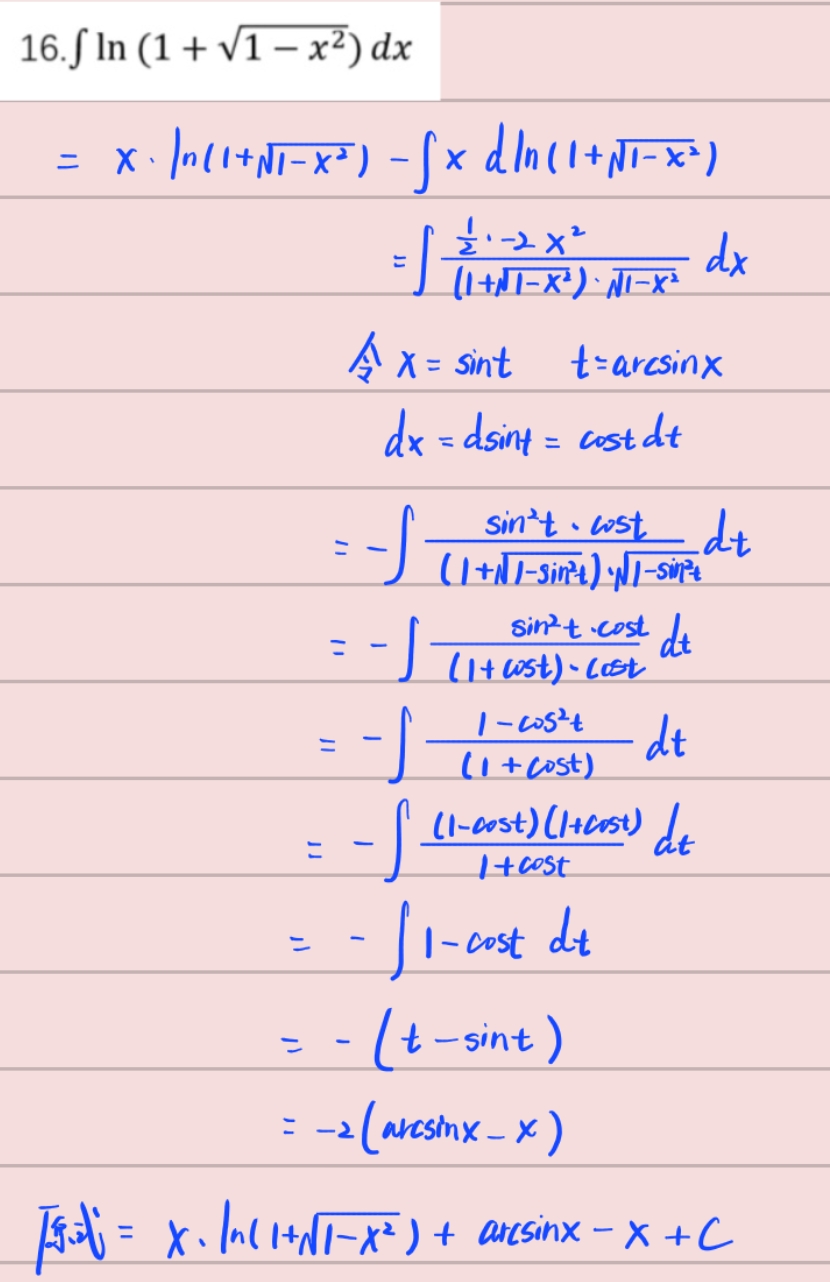 16.∫ ln (1 + √(1 − x²)) dx
= x · ln(1+√(1−x²)) − ∫ x d ln(1+√(1−x²))
= ∫ (½ · −2x²)/((1+√(1−x²)) · √(1−x²)) dx
令 x = sint t=arcsinx
dx = dsint = cost dt
= −∫ (sin²t · cost)/((1+√(1−sin²t)) · √(1−sin²t)) dt
= −∫ (sin²t · cost)/((1+cost) · cost) dt
= −∫ (1−cos²t)/((1+cost)) dt
= −∫ ((1−cost)(1+cost))/(1+cost) dt
= −∫ 1−cost dt
= −(t−sint)
= −2(arcsinx − x)
原式 = x · ln(1+√(1−x²)) + arcsinx − x + C